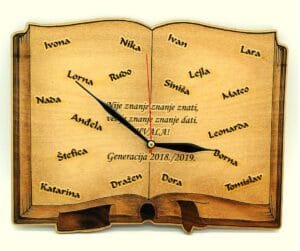 Ivona
Nika
Ivan
Lara
Lorna
Rudo
Lejla
Siniša
Mateo
Nada
Nije znanje znanje znati,
već je znanje znanje dati.
HVALA!
Anđela
Leonarda
Štefica
Borna
Generacija 2018./2019.
Katarina
Dražen
Dora
Tomislav